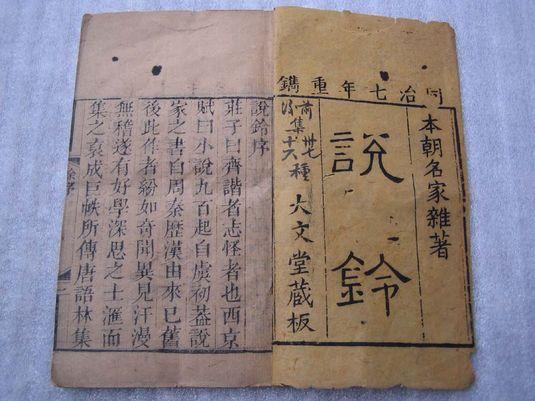 同治七年重鐫
本朝名家雜著
說鈴
前集卅七種
後集十六種
大文堂藏板
說鈴序
莊子曰齊諧者志怪者也西京
賦曰小說九百起自虞初蓋說
家之書自周秦歷漢由來已舊
後此作者紛如奇聞異見汗漫
無稽遂有好學深思之士滙而
集之裒成巨帙所傳唐語林集